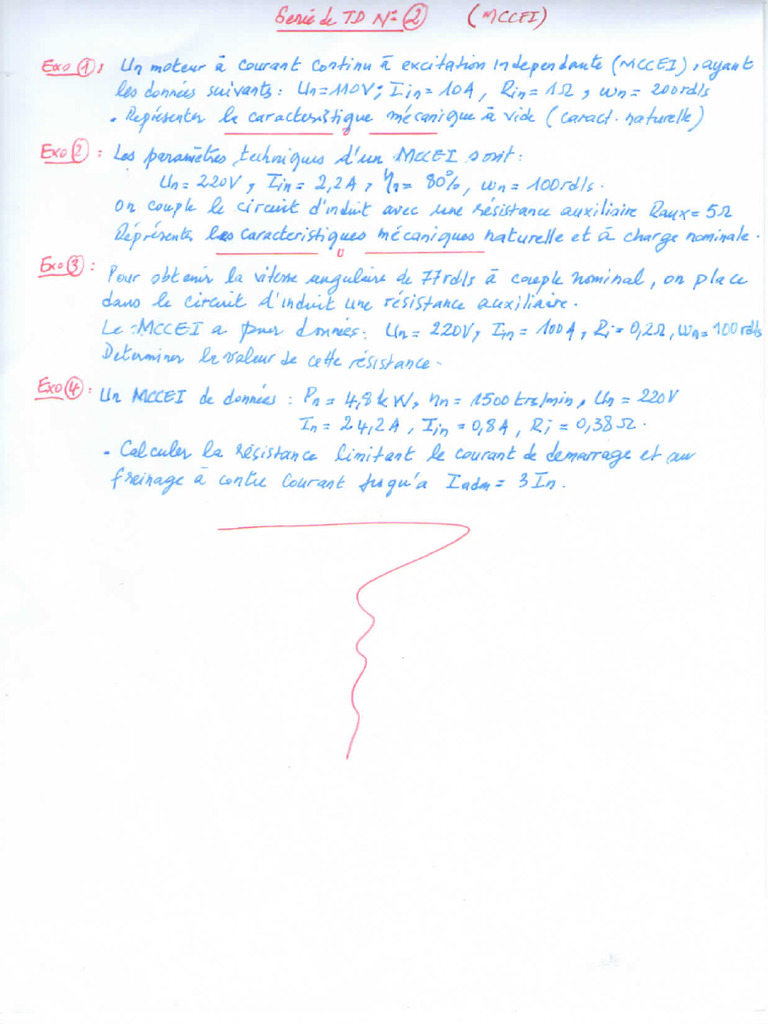 Serie de TD N° 2 (MCCEI)
Exo 1 : Un moteur à courant continu à excitation independante (MCCEI), ayant
les données suivants : Un = 110V ; Iin = 10A, Rin = 1Ω, ωn = 200rd/s
. Représenter la caractéristique mécanique à vide (caract. naturelle)
Exo 2 : Les paramètres techniques d'un MCCEI sont :
Un = 220V, Iin = 2,2A, ηn = 80%, ωn = 100rd/s.
On couple le circuit d'induit avec une résistance auxiliaire Raux = 5Ω
Réprésenter les caracteristiques mécaniques naturelle et à charge nominale.
Exo 3 : Pour obtenir la vitesse angulaire de 77rd/s à couple nominal, on place
dans le circuit d'induit une résistance auxiliaire.
Le MCCEI a pour données : Un = 220V, Iin = 100A, Ri = 0,2Ω, ωn = 100rd/s
Determiner la valeur de cette résistance.
Exo 4 : Un MCCEI de données : Pn = 4,8kW, nn = 1500trs/min, Un = 220V
In = 24,2A, Iin = 0,8A, Ri = 0,38Ω.
. Calculer la résistance limitant le courant de demarrage et au
freinage à contre courant jusqu'a Iadm = 3In.